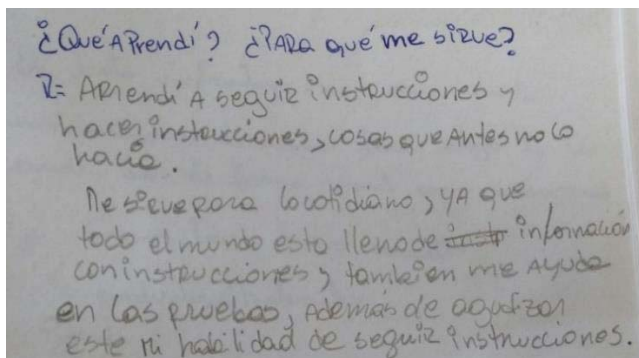 ¿Qué Aprendí? ¿PARA qué me sirve?
R= Aprendí A seguir instrucciones y
hacer instrucciones, cosas que Antes no lo
hacía.
Me sirve para lo cotidiano, YA que
todo el mundo esta lleno de información
con instrucciones y tambien me Ayuda
en las pruebas, Además de agudizar
este mi habilidad de seguir instrucciones.